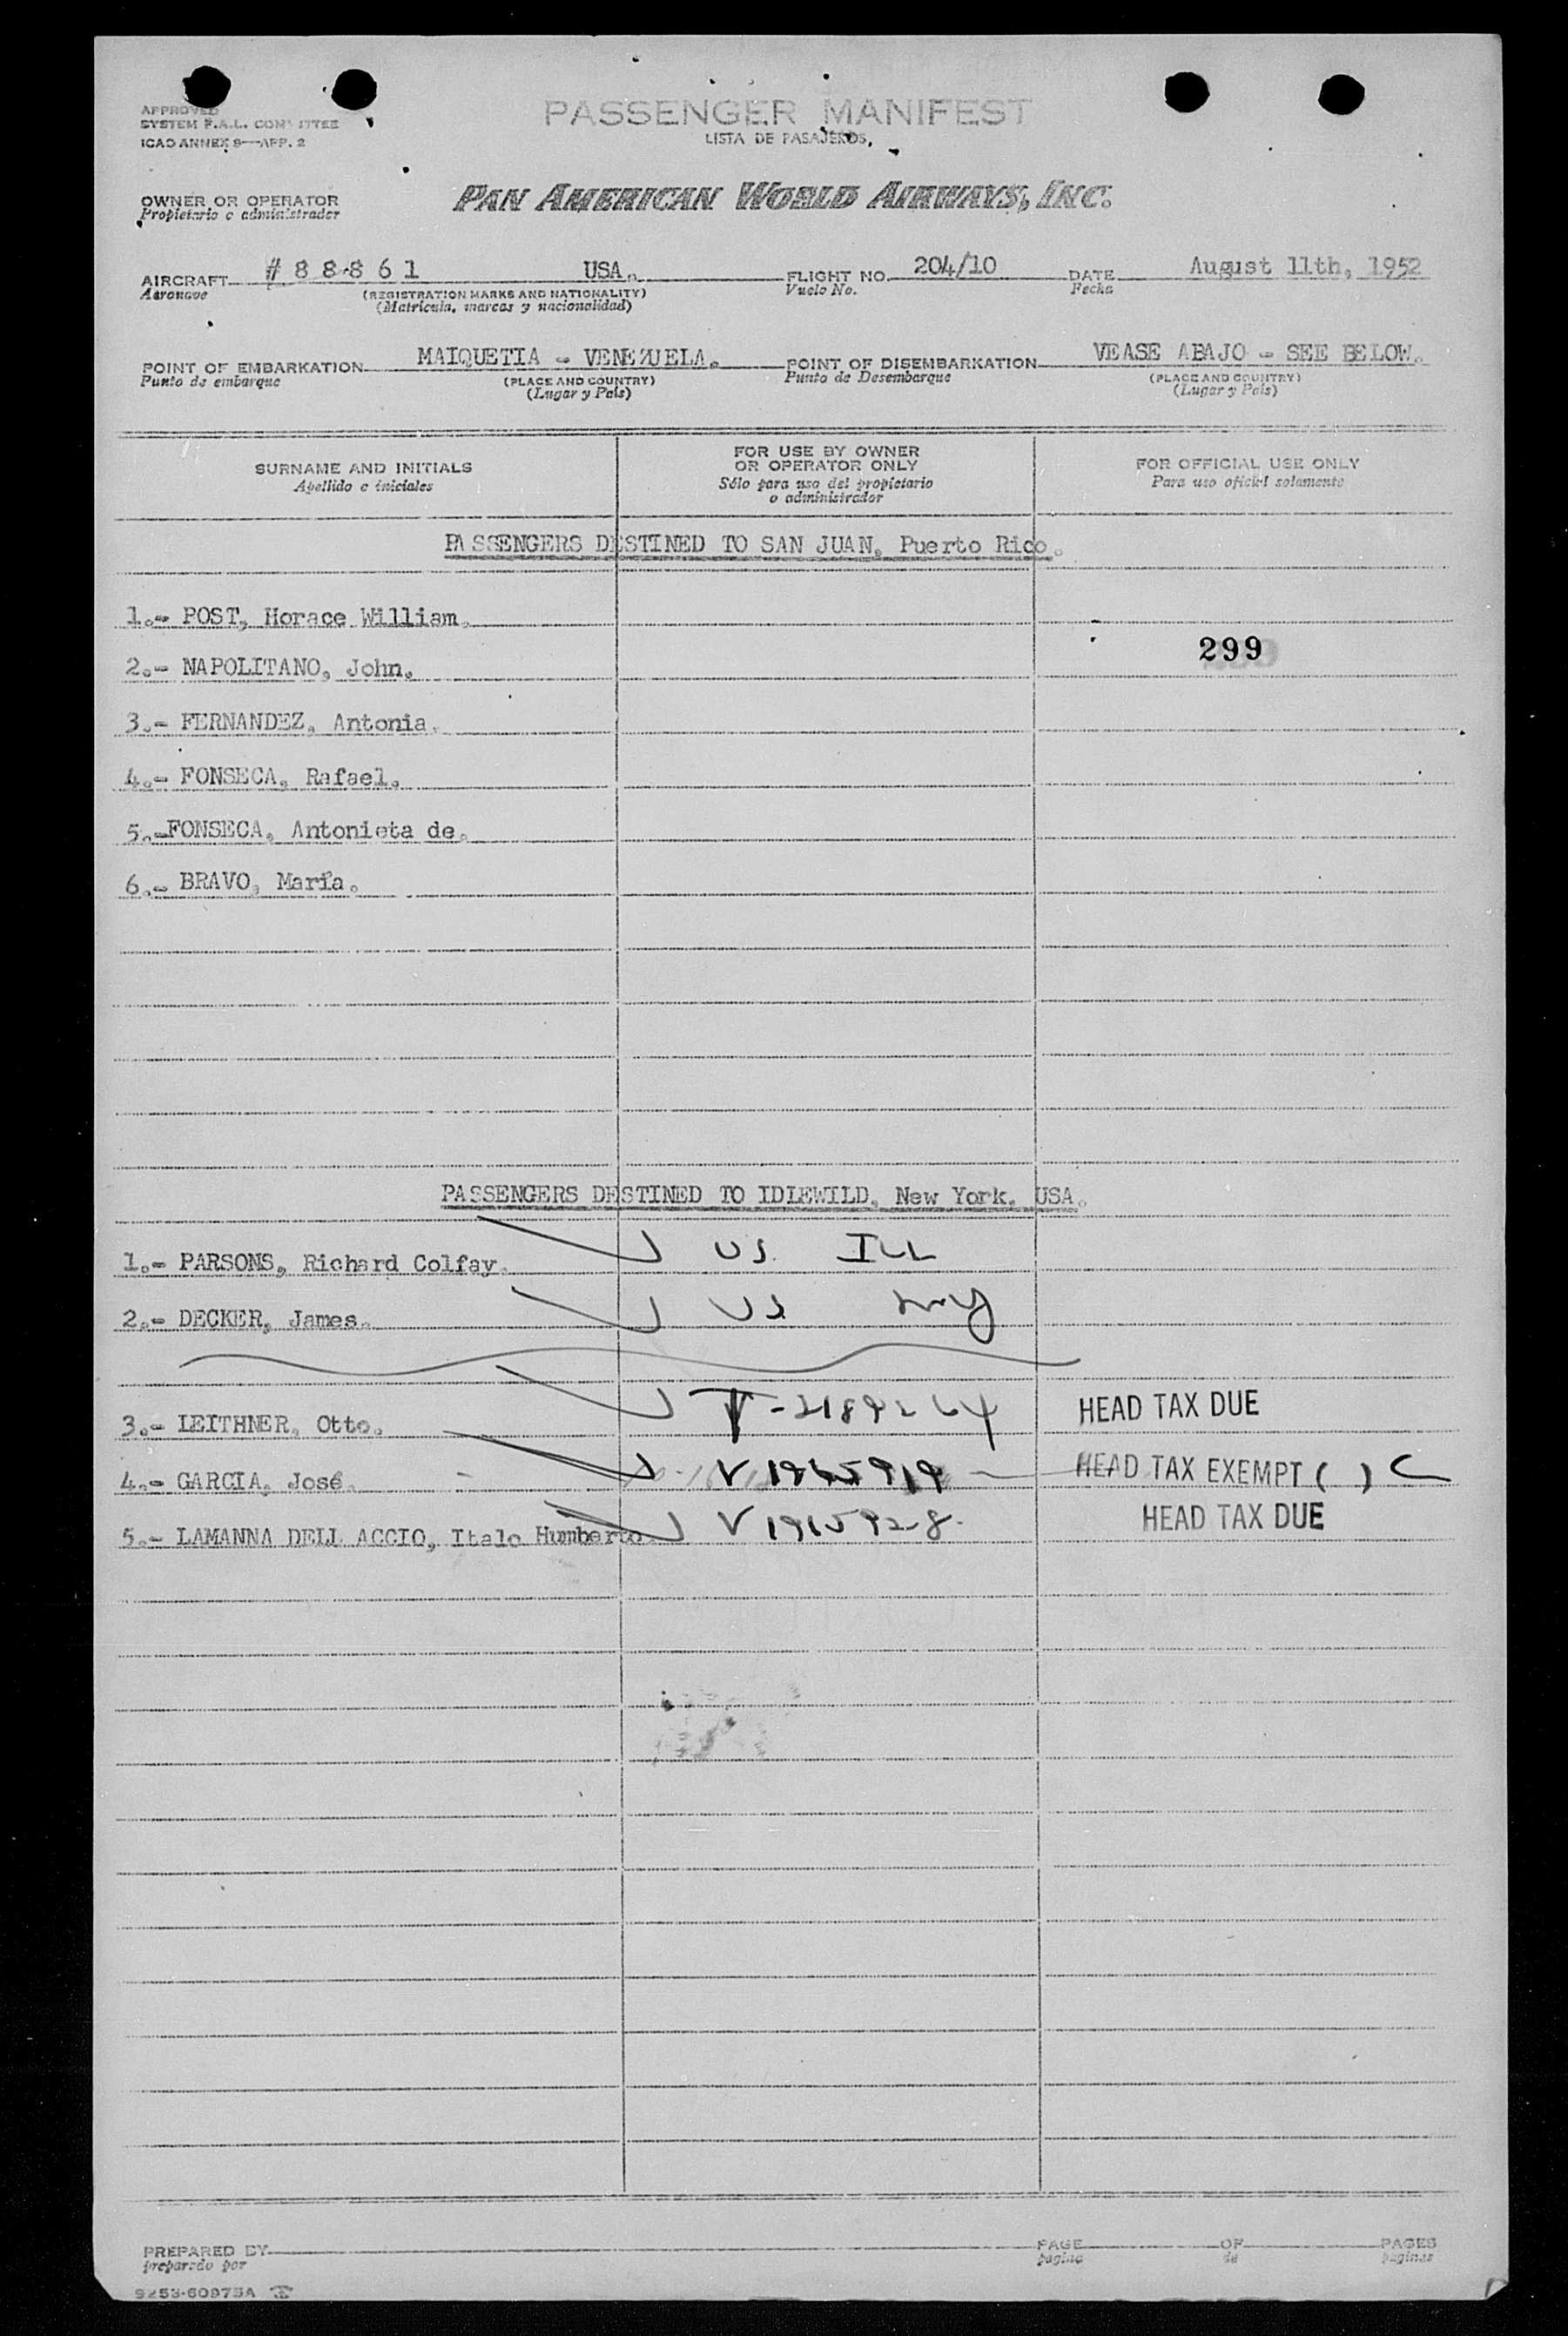 APPROVED
SYSTEM F.A.L. COMMITTEE
ICAO ANNEX 9—APP. 2
PASSENGER MANIFEST
LISTA DE PASAJEROS
OWNER OR OPERATOR
Propietario o administrador
PAN AMERICAN WORLD AIRWAYS, INC.
AIRCRAFT #88861 USA. FLIGHT NO. 204/10 DATE August 11th, 1952
Aeronave (REGISTRATION MARKS AND NATIONALITY) Vuelo No. Fecha
(Matricula, marcas y nacionalidad)
POINT OF EMBARKATION MAIQUETIA - VENEZUELA. POINT OF DISEMBARKATION VEASE ABAJO - SEE BELOW.
Punto de embarque (PLACE AND COUNTRY) Punto de Desembarque (PLACE AND COUNTRY)
(Lugar y País) (Lugar y País)
SURNAME AND INITIALS FOR USE BY OWNER OR OPERATOR ONLY FOR OFFICIAL USE ONLY
Apellido e iniciales Sólo para uso del propietario o administrador Para uso oficial solamente
PASSENGERS DESTINED TO SAN JUAN, Puerto Rico.
1.- POST, Horace William.
299
2.- NAPOLITANO, John.
3.- FERNANDEZ, Antonia.
4.- FONSECA, Rafael.
5.-FONSECA, Antonieta de.
6.- BRAVO, María.
PASSENGERS DESTINED TO IDLEWILD, New York, USA.
1.- PARSONS, Richard Colfay. US ILL
2.- DECKER, James. US
3.- LEITHNER, Otto. HEAD TAX DUE
4.- GARCIA, José. HEAD TAX EXEMPT ( ) C
5.- LAMANNA DELL ACCIO, Italo Humberto. HEAD TAX DUE
PREPARED BY PAGE OF PAGES
preparado por página de páginas
9253-60975A